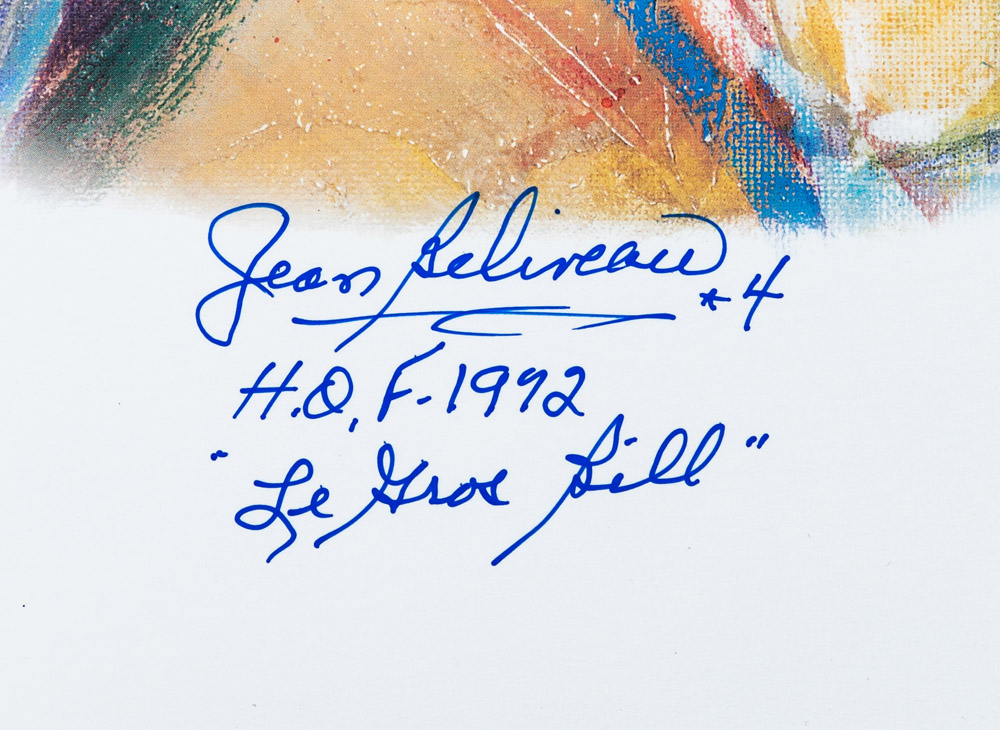 Jean Beliveau *4
H.O.F.-1972
"Le Gros Bill"